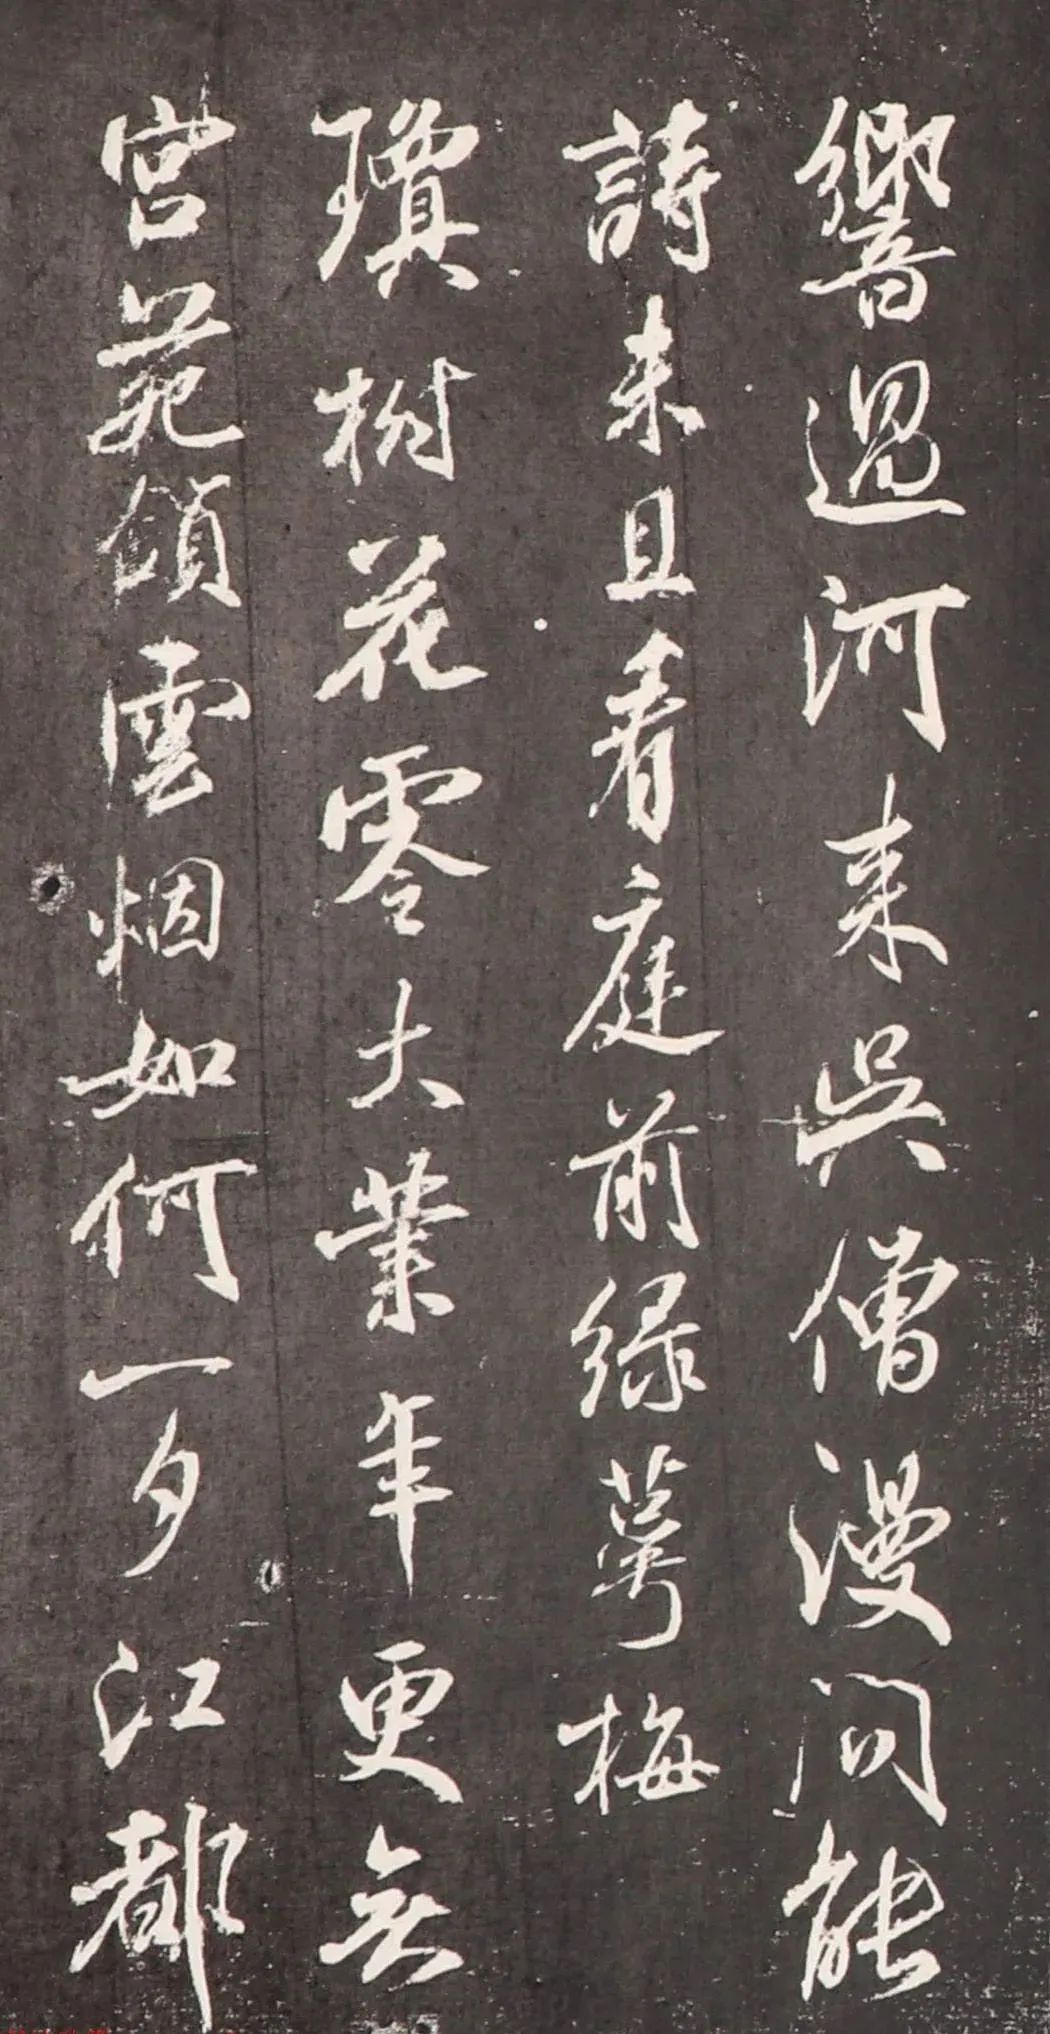 響過河来吳僧漫問能
詩未且看庭前緑萼梅
瓊樹花零大業年更無
宮苑鎖雲烟如何一夕江都